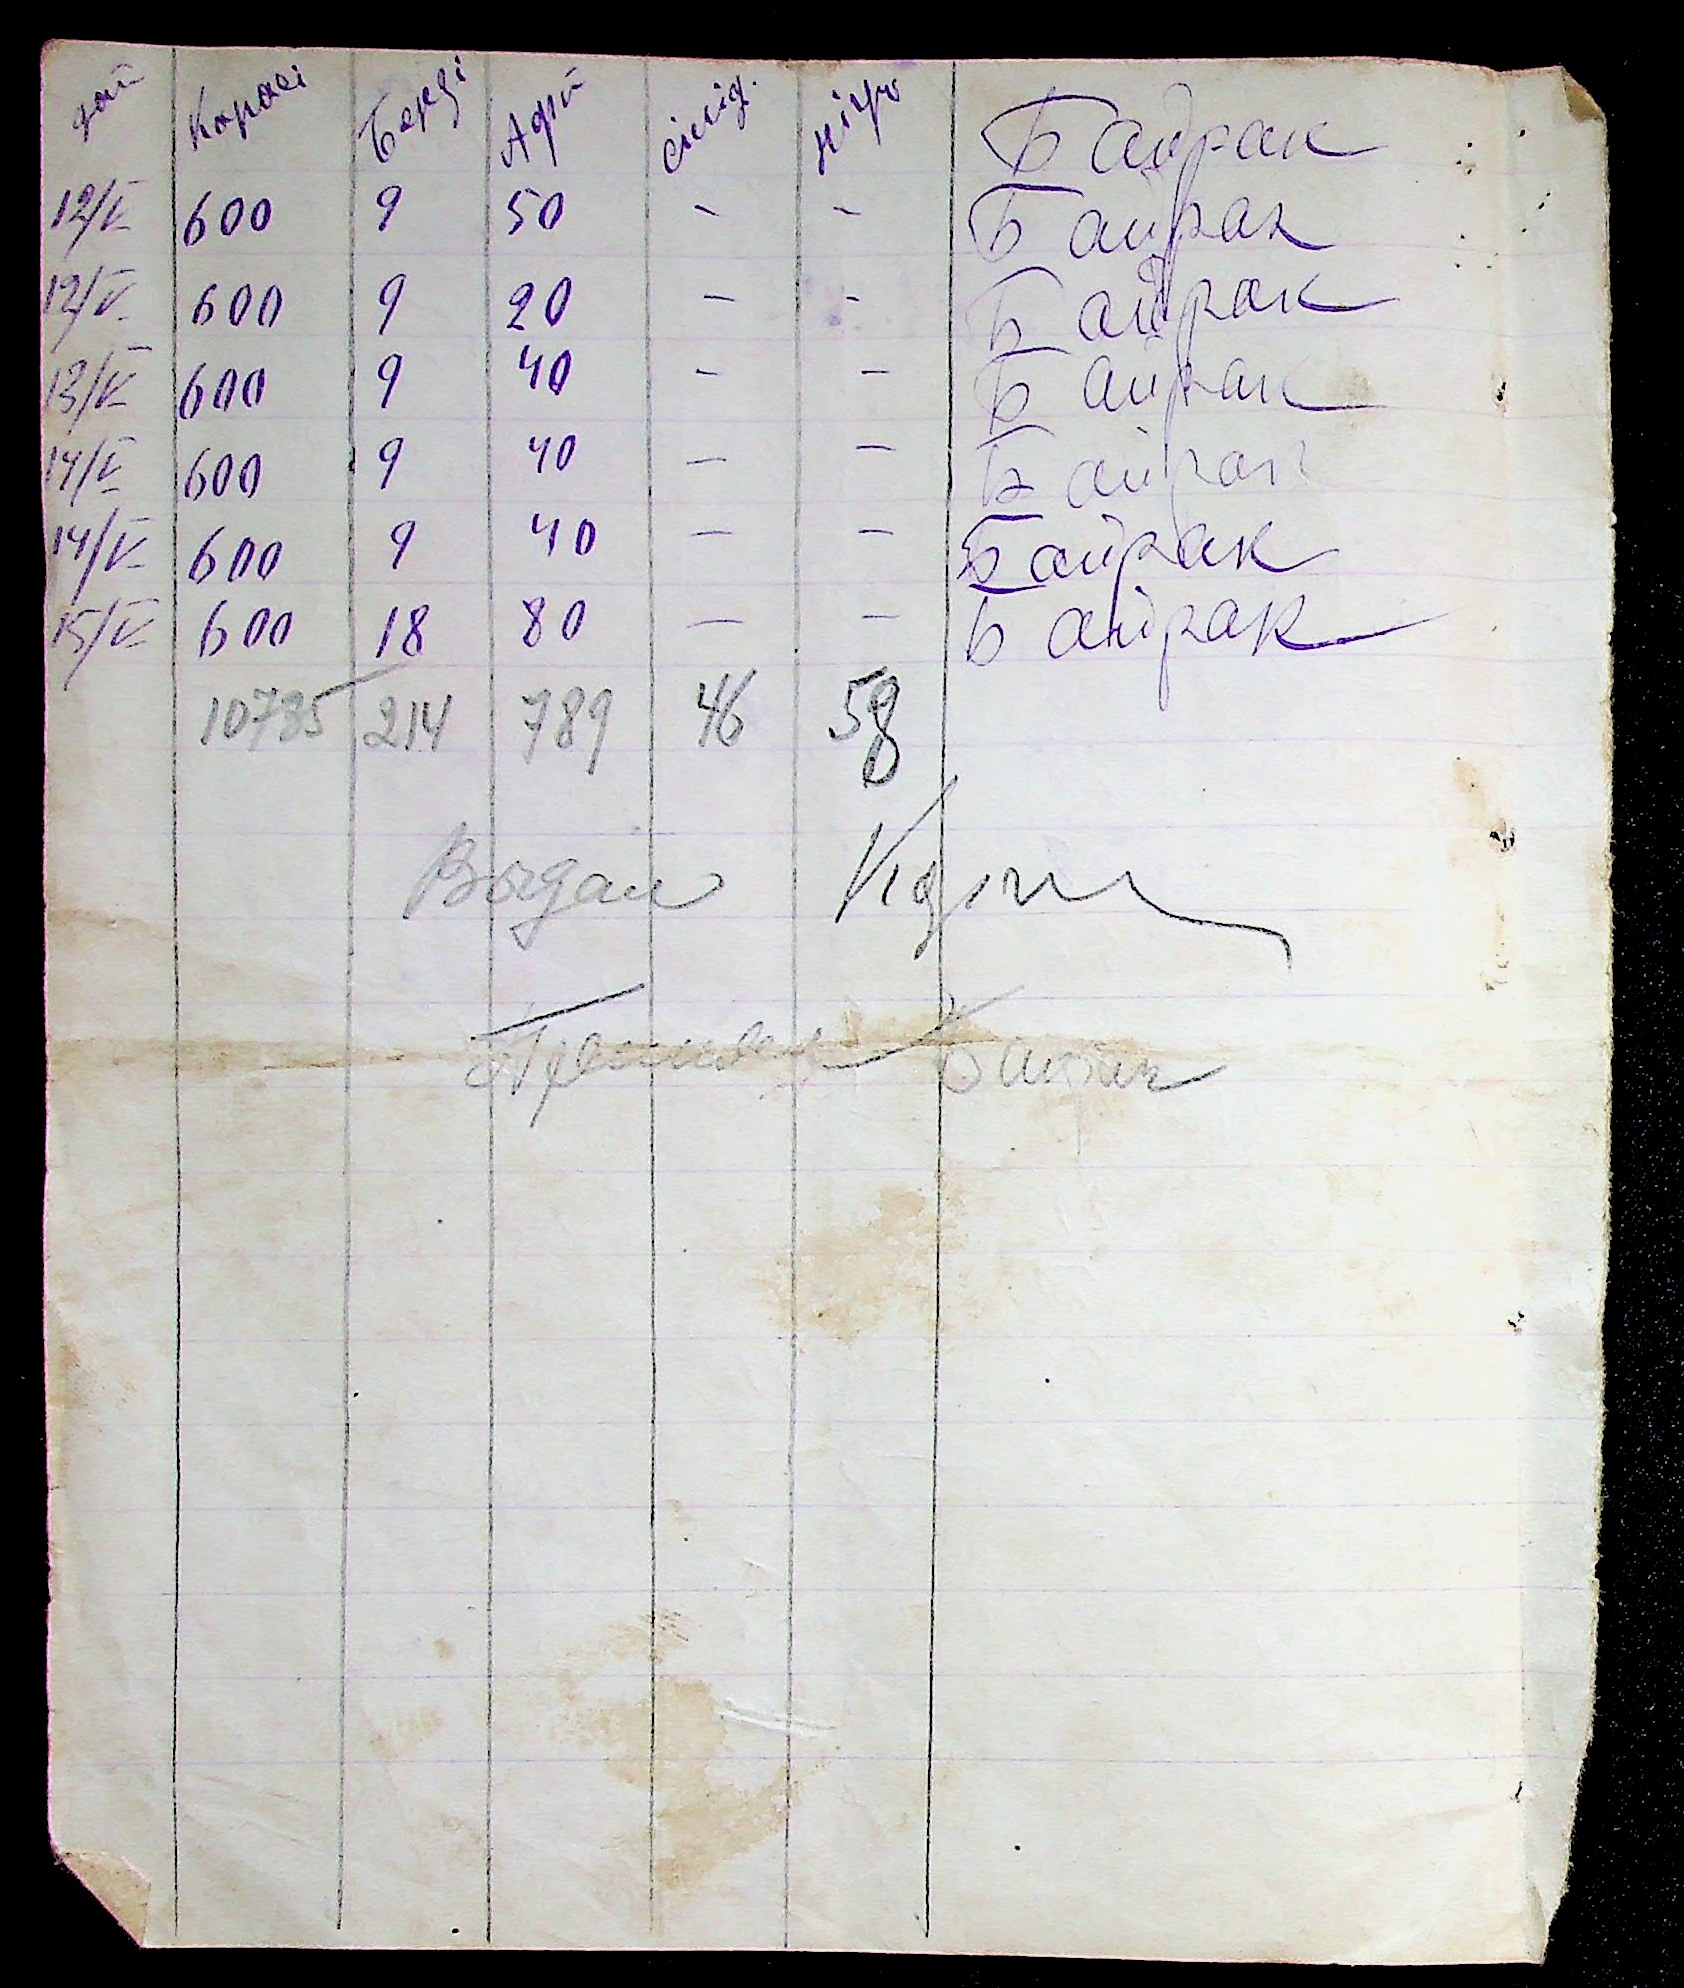 дати Карасі Берді Адрі сінід. нігро Байрак
12/V 600 9 50 - - Байрак
12/V. 600 9 20 - - Байрак
13/V 600 9 40 - - Байрак
14/V 600 9 40 - - Байрак
14/V 600 9 40 - - Байрак
15/V 600 18 80 - - Байрак
10735 214 789 46 58
Выдал
Принял Байрак